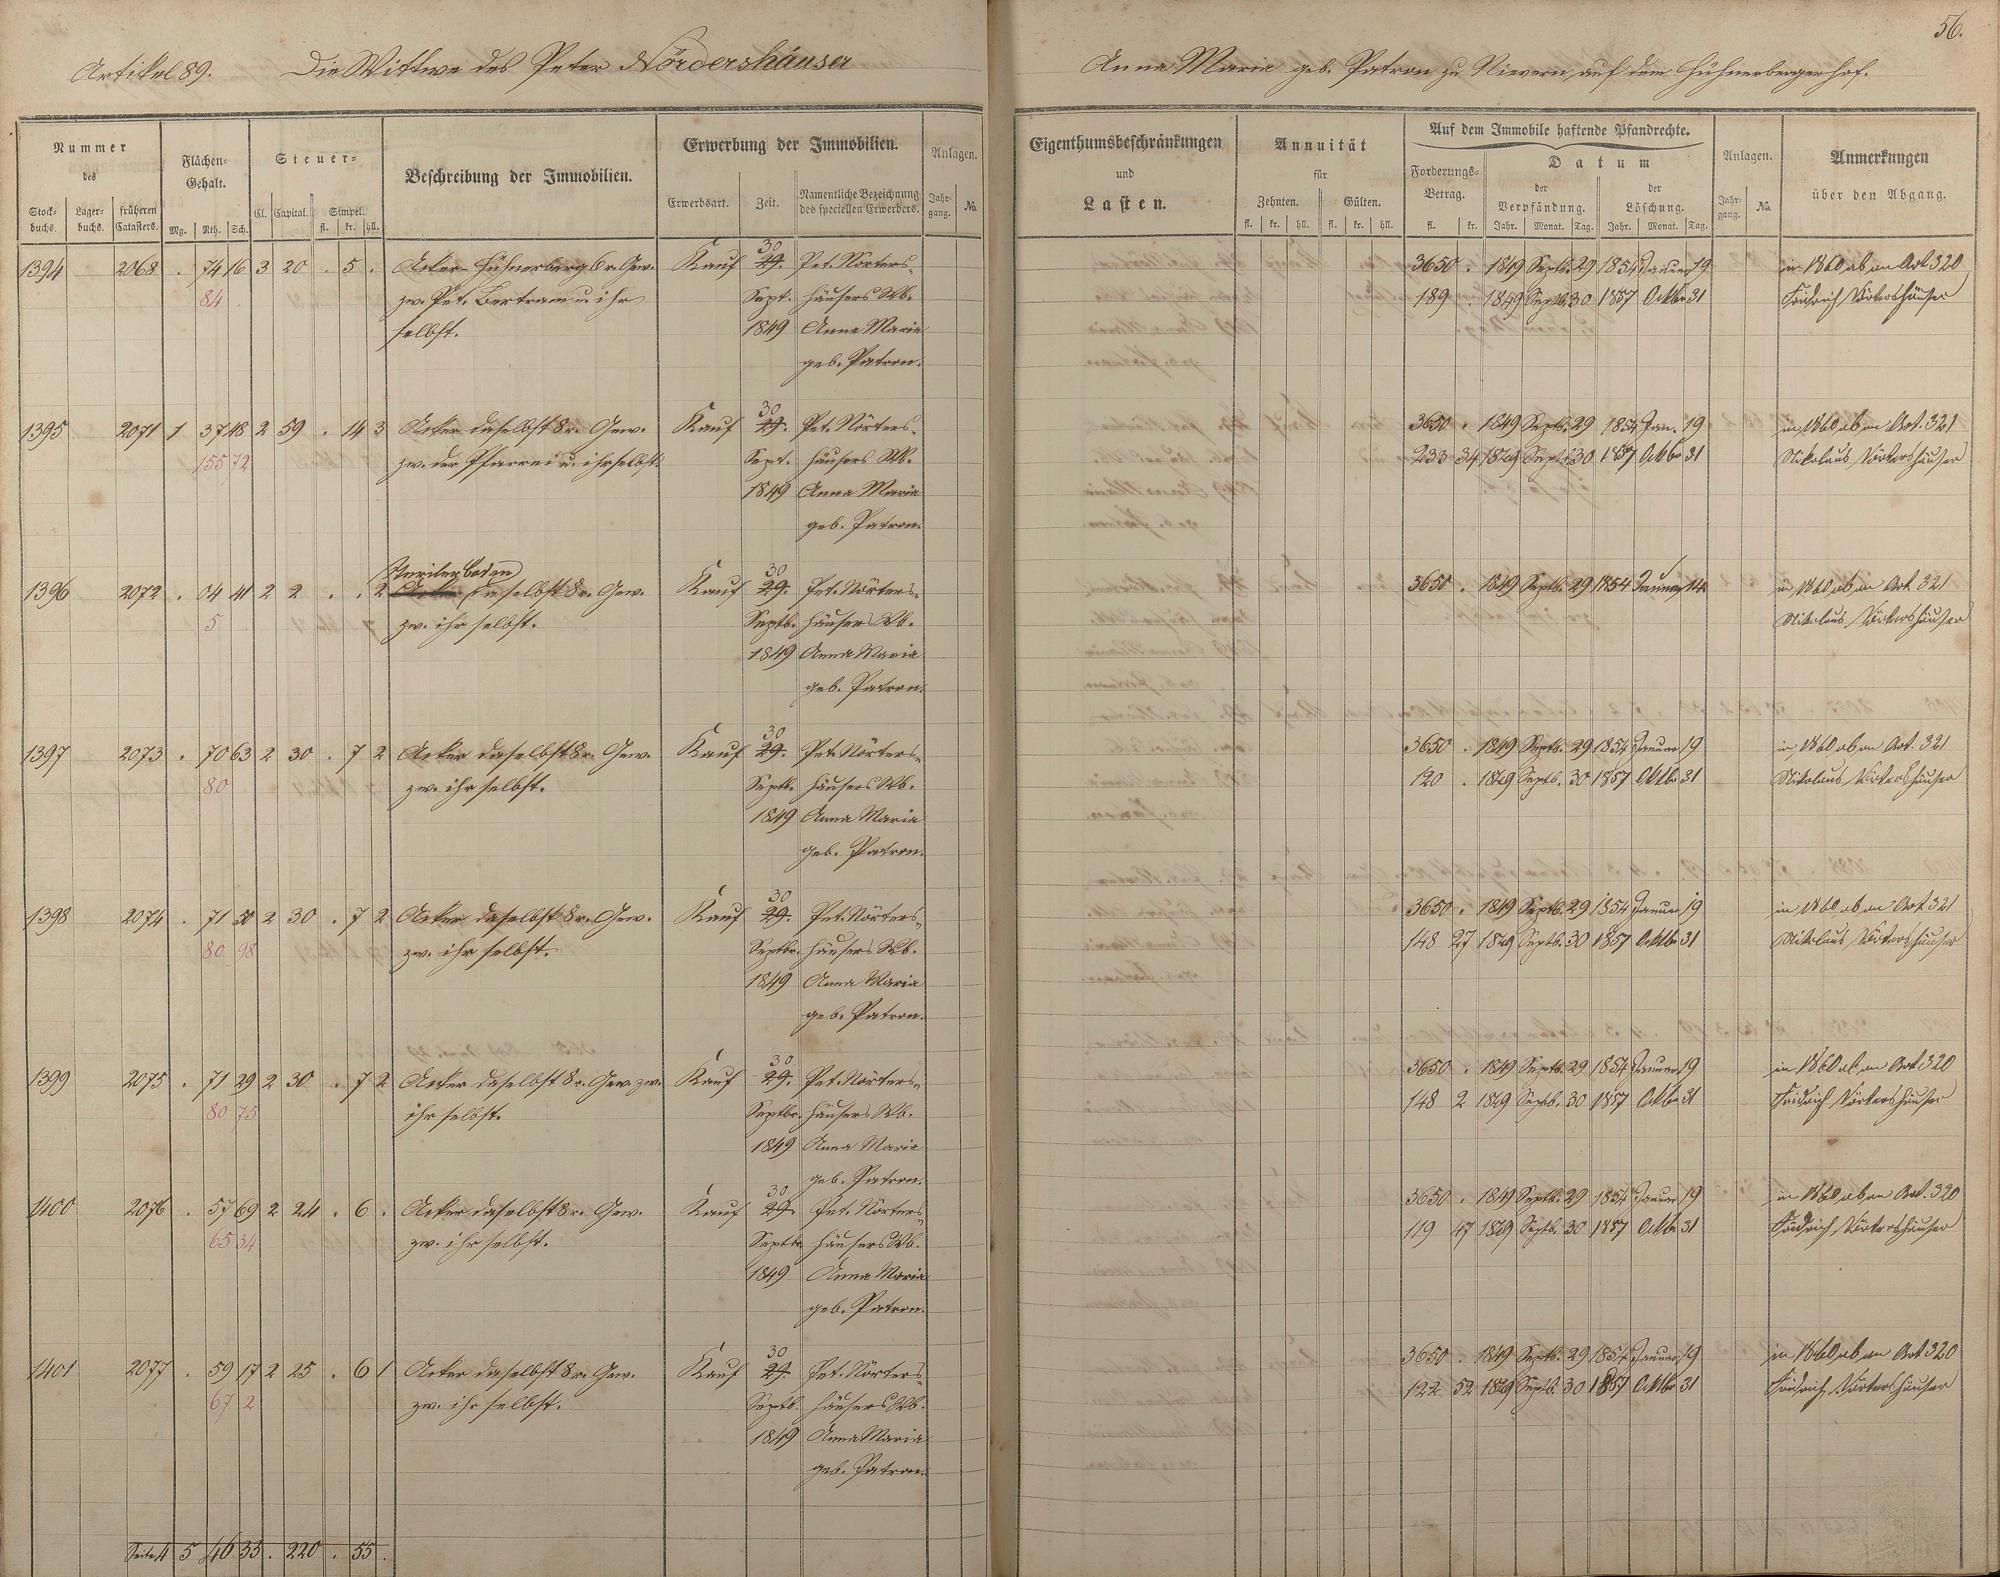 56.
Artikel 89. Die Wittwe des Peter Nördershäuser
Anna Maria geb. Patron zu Nievern, auf dem Hühnerbergerhof.
Nummer des
Stock-buchs. Lager-buchs. früheren Catasters.
Flächen-Gehalt.
Mg. Rth. Sch.
Steuer-
Cl. Capital. Simpel.
fl. kr. hll.
Beschreibung der Immobilien.
Erwerbung der Immobilien.
Erwerbsart. Zeit. Namentliche Bezeichnung des speciellen Erwerbers.
Anlagen.
Jahr-gang. No.
Eigenthumsbeschränkungen
und
Lasten.
Annuität
für
Zehnten. Gülten.
fl. kr. hll. fl. kr. hll.
Auf dem Immobile haftende Pfandrechte.
Forderungs-Betrag.
fl. kr.
Datum
der Verpfändung. der Löschung.
Jahr. Monat. Tag. Jahr. Monat. Tag.
Anlagen.
Jahr-gang. No.
Anmerkungen
über den Abgang.
1394 2068 . 74 16 3 20 . 5 . Acker Hühnerberg 6r. Gew. Kauf 30 29. Pet. Nörters-
84 zw. Pet. Bertram u. ihr Sept. häusers Wb.
selbst. 1849 Anna Maria
geb. Patron.
3650 . 1849 Septb. 29 1854 Januar 19 in 1860 ab an Art 320
189 . 1849 Septb. 30 1857 Oktbr 31 Friedrich Nörtershäuser
1395 2071 1 37 48 2 59 . 14 3 Acker daselbst 8r. Gew. Kauf 30 29. Pet. Nörters-
155 72 zw. der Pfarrei u. ihrselbst. Sept. häusers Wb.
1849 Anna Maria
geb. Patron.
3650 . 1849 Septb. 29 1854 Jan. 19 in 1860 ab an Art. 321
233 34 1849 Septb. 30 1857 Oktbr 31 Nikolaus Nörtershäuser
Steriler Boden
1396 2072 . 04 41 2 2 . . 2 Acker daselbst 8r. Gew. Kauf 30 29. Pet. Nörters-
5 zw. ihr selbst. Septb. häusers Wb.
1849 Anna Maria
geb. Patron.
3650 . 1849 Septb. 29 1854 Januar in 1860 ab an Art. 321
Nikolaus Nörtershäuser
1397 2073 . 70 63 2 30 . 7 2 Acker daselbst 8r. Gew. Kauf 30 29. Pet. Nörters-
80 zw. ihr selbst. Septb. häusers Wb.
1849 Anna Maria
geb. Patron.
3650 . 1849 Septb. 29 1854 Januar 19 in 1860 ab an Art. 321
120 . 1849 Septb. 30 1857 Oktbr 31 Nikolaus Nörtershäuser
1398 2074 . 71 50 2 30 . 7 2 Acker daselbst 8r. Gew. Kauf 30 29. Pet. Nörters-
80 98 zw. ihr selbst. Septbr. häusers Wb.
1849 Anna Maria
geb. Patron.
3650 . 1849 Septb. 29 1854 Januar 19 in 1860 ab an Art. 321
148 27 1849 Septb. 30 1857 Oktbr 31 Nikolaus Nörtershäuser
1399 2075 . 71 29 2 30 . 7 2 Acker daselbst 8r. Gew. zw. Kauf 30 29. Pet. Nörters-
80 75 ihr selbst. Septbr. häusers Wb.
1849 Anna Maria
geb. Patron.
3650 . 1849 Septb. 29 1854 Januar 19 in 1860 ab an Art 320
148 2 1849 Septb. 30 1857 Oktbr 31 Friedrich Nörtershäuser
1400 2076 . 57 69 2 24 . 6 . Acker daselbst 8r. Gew. Kauf 30 29. Pet. Nörters-
65 34 zw. ihr selbst. Septbr häusers Wb.
1849 Anna Maria
geb. Patron.
3650 . 1849 Septb. 29 1854 Januar 19 in 1860 ab an Art. 320
119 47 1849 Septb. 30 1857 Oktbr 31 Friedrich Nörtershäuser
1401 2077 . 59 17 2 25 . 6 1 Acker daselbst 8r. Gew. Kauf 30 29. Pet. Nörters-
67 2 zw. ihr selbst. Septb. häusers Wb.
1849 Anna Maria
geb. Patron.
3650 . 1849 Septb. 29 1854 Januar 19 in 1860 ab an Art 320
122 52 1849 Septb. 30 1857 Oktbr 31 Friedrich Nörtershäuser
Seite 4 5 46 33 . 220 . 55 .